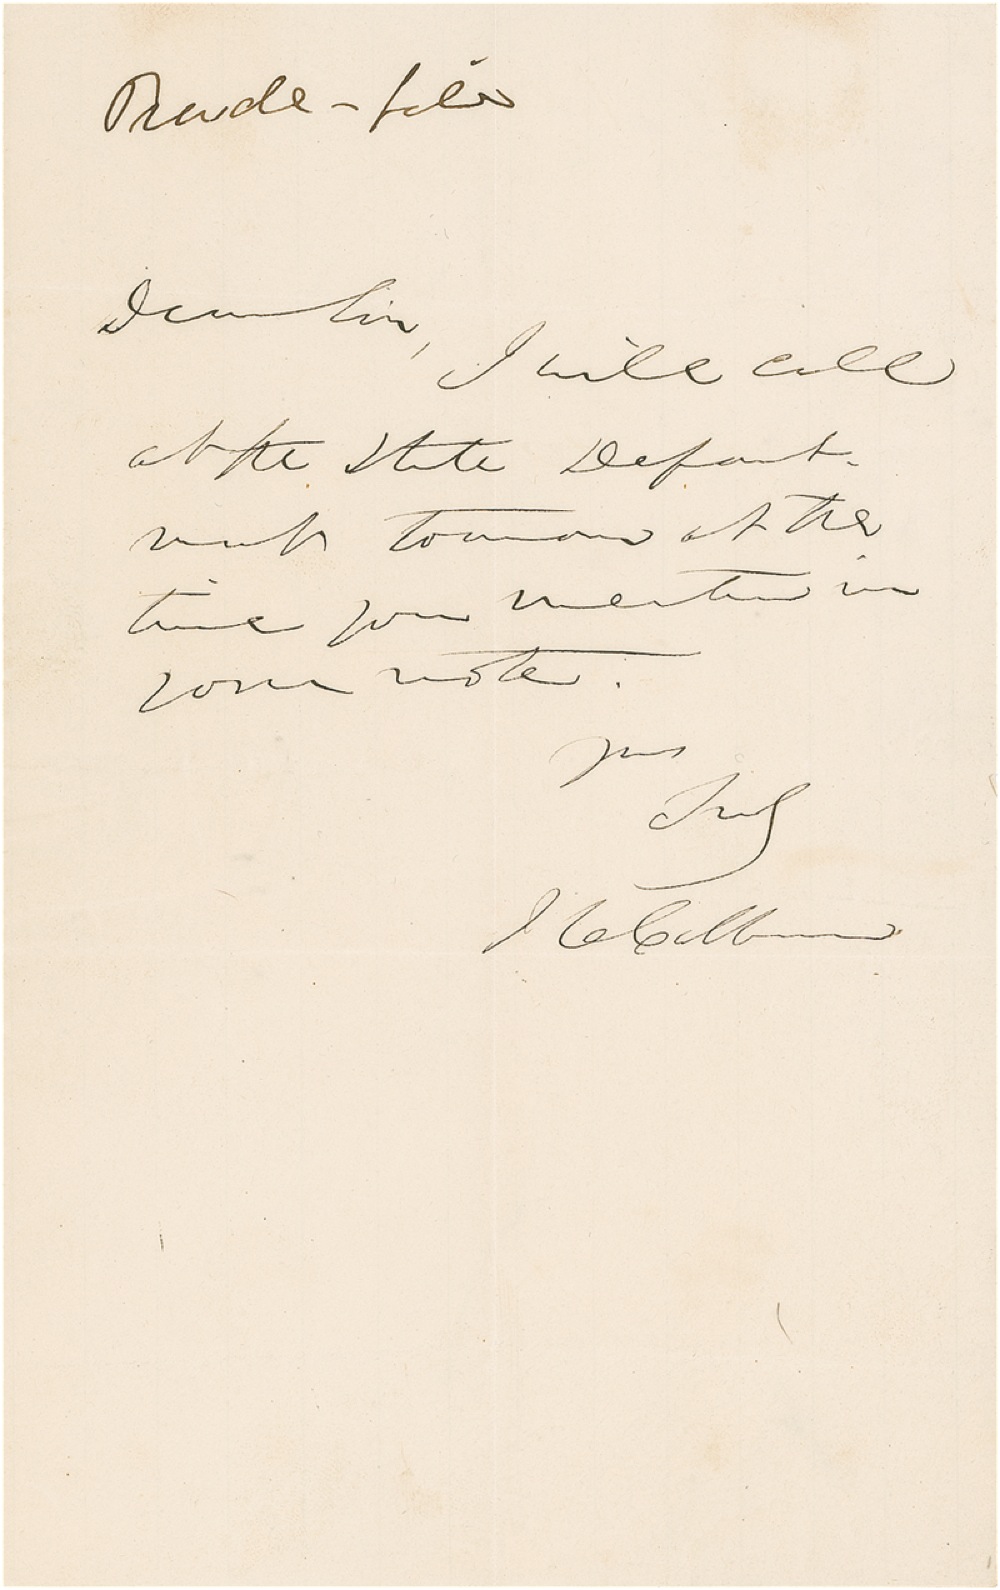 Dear Sir,
I will call
at the State Depart-
ment tomorrow at the
time you mention in
your note.
yours
Truly
J C Calhoun